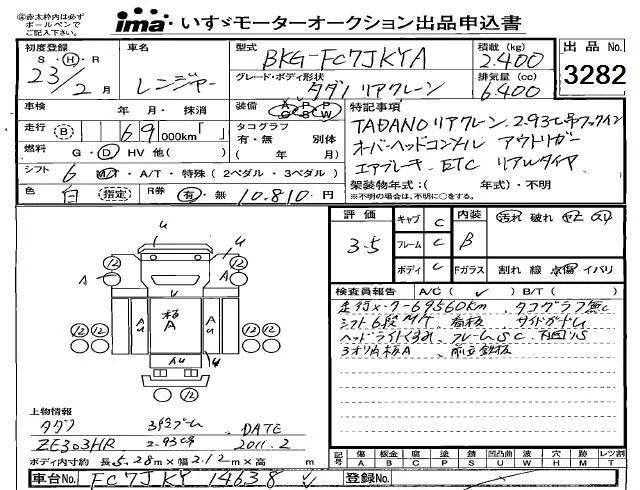 ④赤太枠内は必ず
ボールペンで
ご記入下さい。
ima いすゞモーターオークション出品申込書
初度登録 車名 型式 BKG-FC7JKYA 積載 (kg) 2.400 出品 No.
S・H・R 23/2月 レンジャー グレード・ボディ形状 タダノリアクレーン 排気量 (cc) 6.400 3282
車検 年 月・抹消 装備 A P P G B W 特記事項
走行 (B) 69 000km「 」 タコグラフ 有・無 別体 TADANOリアクレーン 2.93t吊フックイン
燃料 G・D・HV 他( ) ( 年 月) オーバーヘッドコンソール アウトリガー
シフト 6 M/T・A/T・特殊 (2ペダル・3ペダル) エアブレーキ. ETC リアルタイヤ
色 白 指定 R券 有・無 10.810円 架装物年式:( 年式)・不明
※不明の場合は、不明に○をする。
評価 3.5 キャブ C 内装 B 汚れ 破れ
フレーム C
ボディ C Fガラス 割れ 線 点傷 イバリ
検査員報告 A/C( ✓ ) B/T( )
走行メーター69560km タコグラフ無し
シフト6段M/T 看板 サイドガード
ヘッドライトくすみ フレームSC 下回りS
3オリ凸板A 前立鉄板
u
u
⑫ ⑫
A A
u
Au 板A Au
⑫ ⑫ ⑫ ⑫
Au u
上物情報
タダノ 3段ブーム DATE
ZE303HR 2.93t吊 2011.2
ボディ内寸約 長5.28m×幅2.12m×高 m
記号 傷 板金 腐 塗 錆 凹凸曲 波 穴 跡 レツ割
A B C P S U W H M T
車台No. FC7JKY 14638 ✓ 登録No.